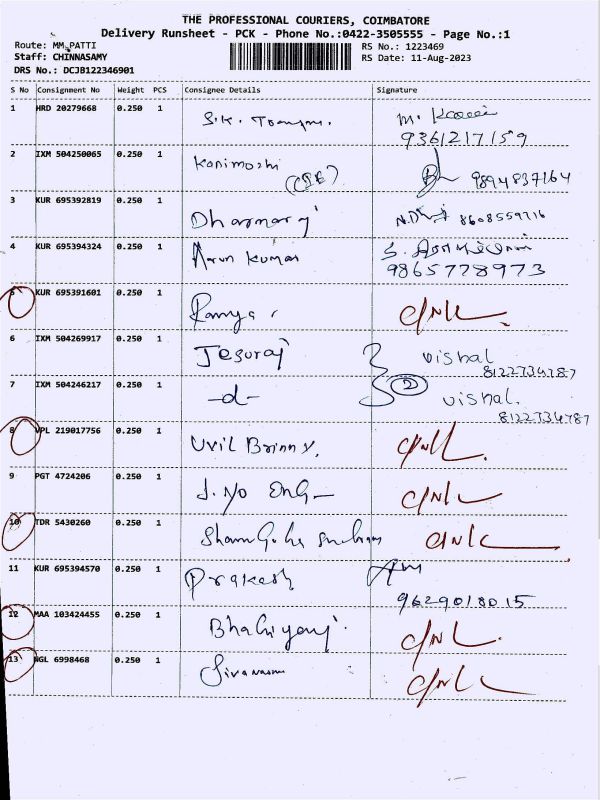 THE PROFESSIONAL COURIERS, COIMBATORE
Delivery Runsheet - PCK - Phone No.:0422-3505555 - Page No.:1
Route: MM PATTI
RS No.: 1223469
Staff: CHINNASAMY
RS Date: 11-Aug-2023
DRS No.: DCJB122346901
S No Consignment No Weight PCS Consignee Details Signature
1 HRD 20279668 0.250 1 S.K. M.
9361217159
2 IXM 504250065 0.250 1 Kanimozhi
9894837164
3 KUR 695392819 0.250 1 Dharmaraj 8608559716
4 KUR 695394324 0.250 1 Arun Kumar S.
9865778973
5 KUR 695391601 0.250 1 Ramya C/N/L
6 IXM 504269917 0.250 1 Jesuraj Vishal
8122734787
7 IXM 504246217 0.250 1 -d- 2 Vishal.
8122734787
8 VPL 219017756 0.250 1 C/N/L
9 PGT 4724206 0.250 1 C/N/L
10 TDR 5430260 0.250 1 C/N/L
11 KUR 695394570 0.250 1 Prakash
9629018015
12 MAA 103424455 0.250 1 C/N/L
13 NGL 6998468 0.250 1 C/N/L